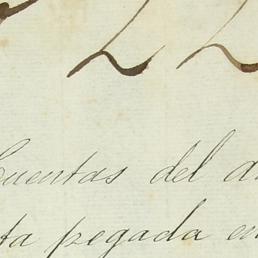 22
Cuentas del a
ta pegada en